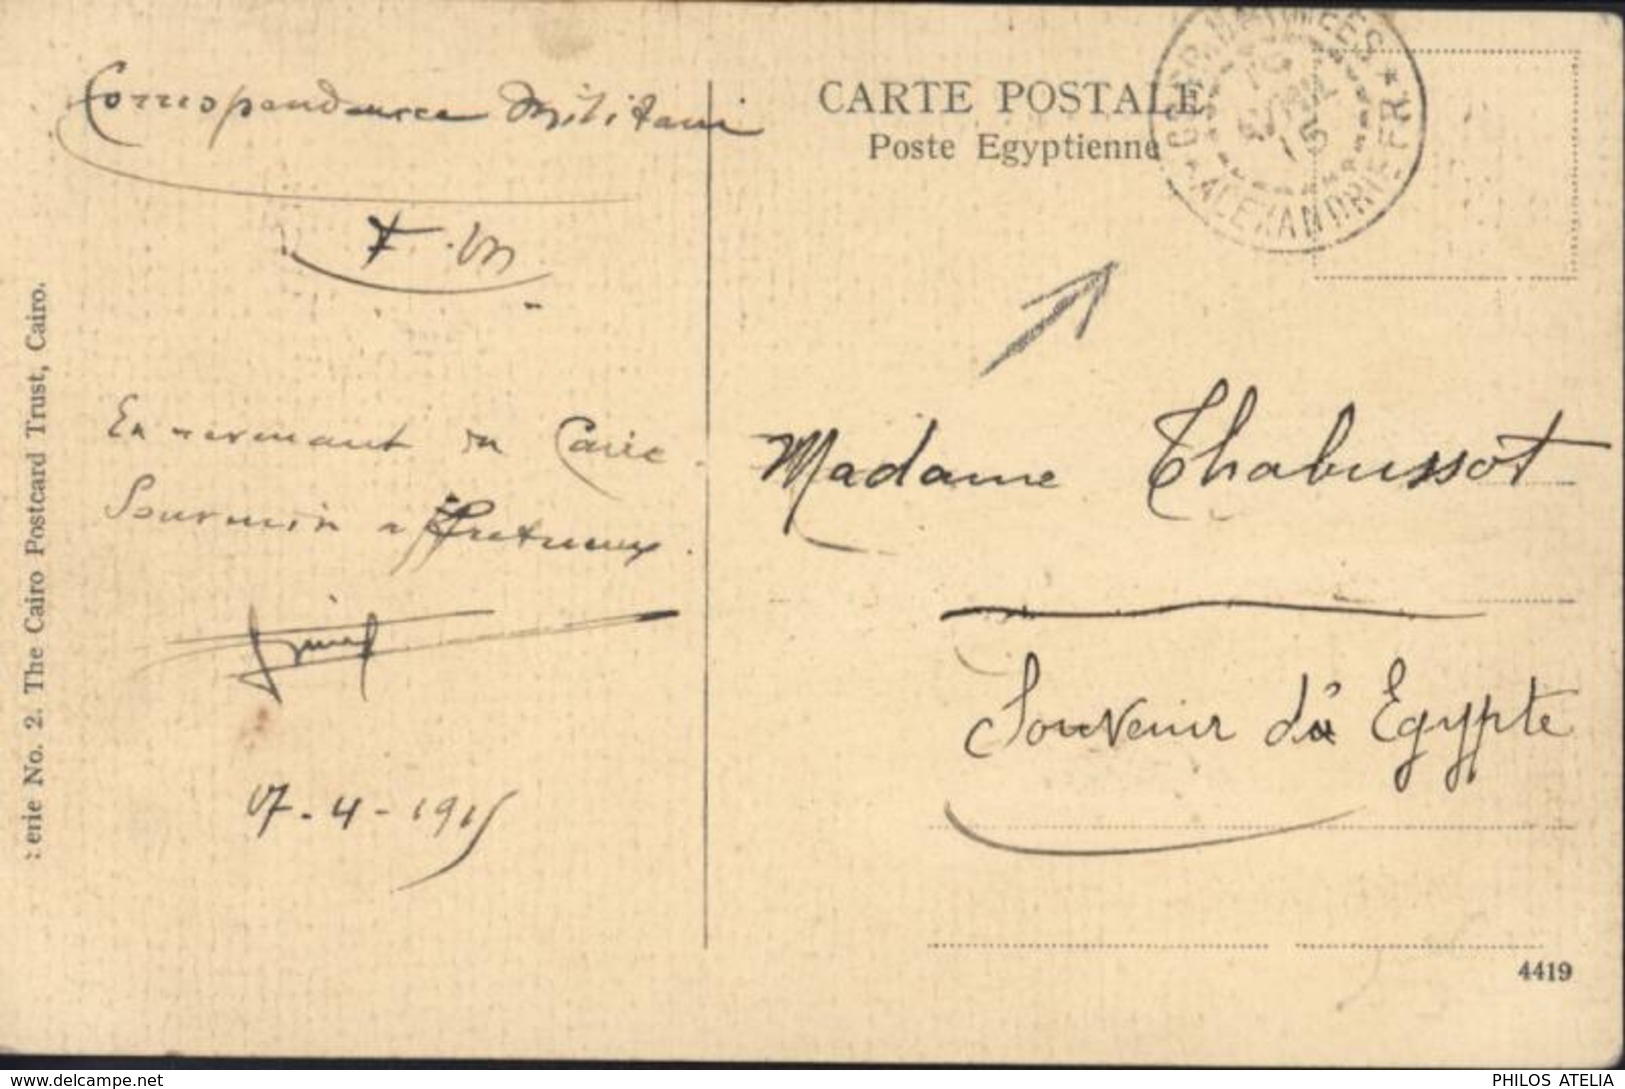 Correspondance Militaire
F.M
En revenant du Caire
Souvenir affectueux.
17-4-1915
Serie No. 2. The Cairo Postcard Trust, Cairo.
CARTE POSTALE
Poste Egyptienne
CORR. D'ARMEES
ALEXANDRIE-FR.
15
Madame Thabussot
Souvenir d'Egypte
4419
PHILOS ATELIA
www.delcampe.net